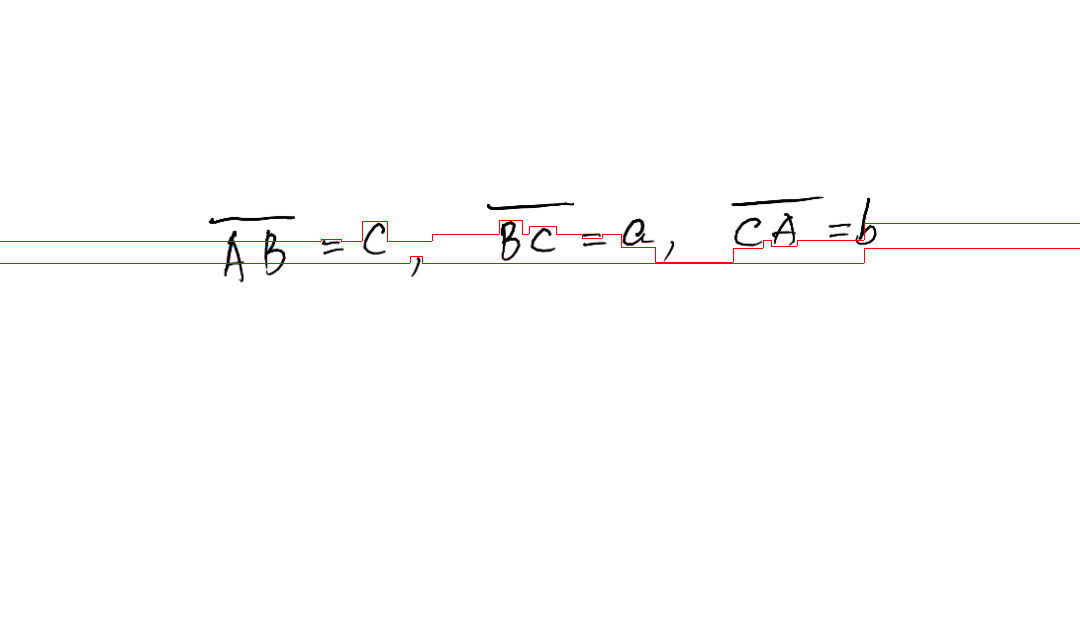 $\overline{AB} = c, \overline{BC} = a, \overline{CA} = b$